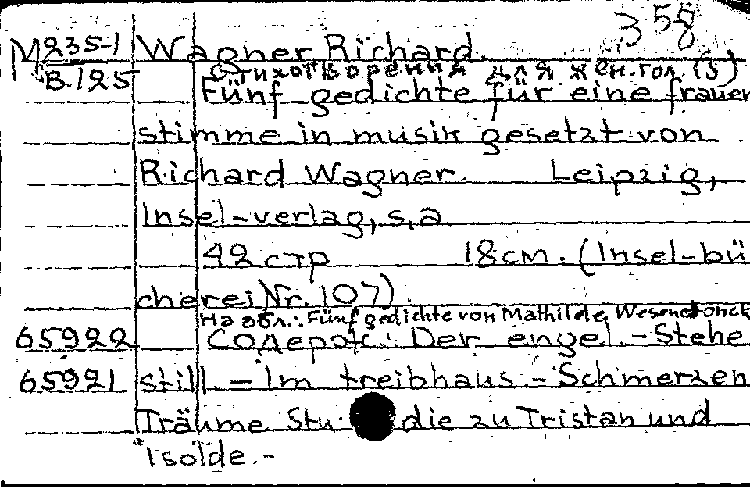 358
M235-1 Wagner Richard.
B.125 Стихотворения для жен.гол (5)
Fünf gedichte für eine frauen
stimme in musik gesetzt von
Richard Wagner. Leipzig,
Insel-verlag, s,a
42 стр 18cm. (Insel-bü
cherei Nr. 107).
На обл.: Fünf gedichte von Mathilde Wesendonck
65922 Содерж: Der engel. - Stehe
65921 still - Im treibhaus - Schmerzen
Träume Studie zu Tristan und
Isolde. -